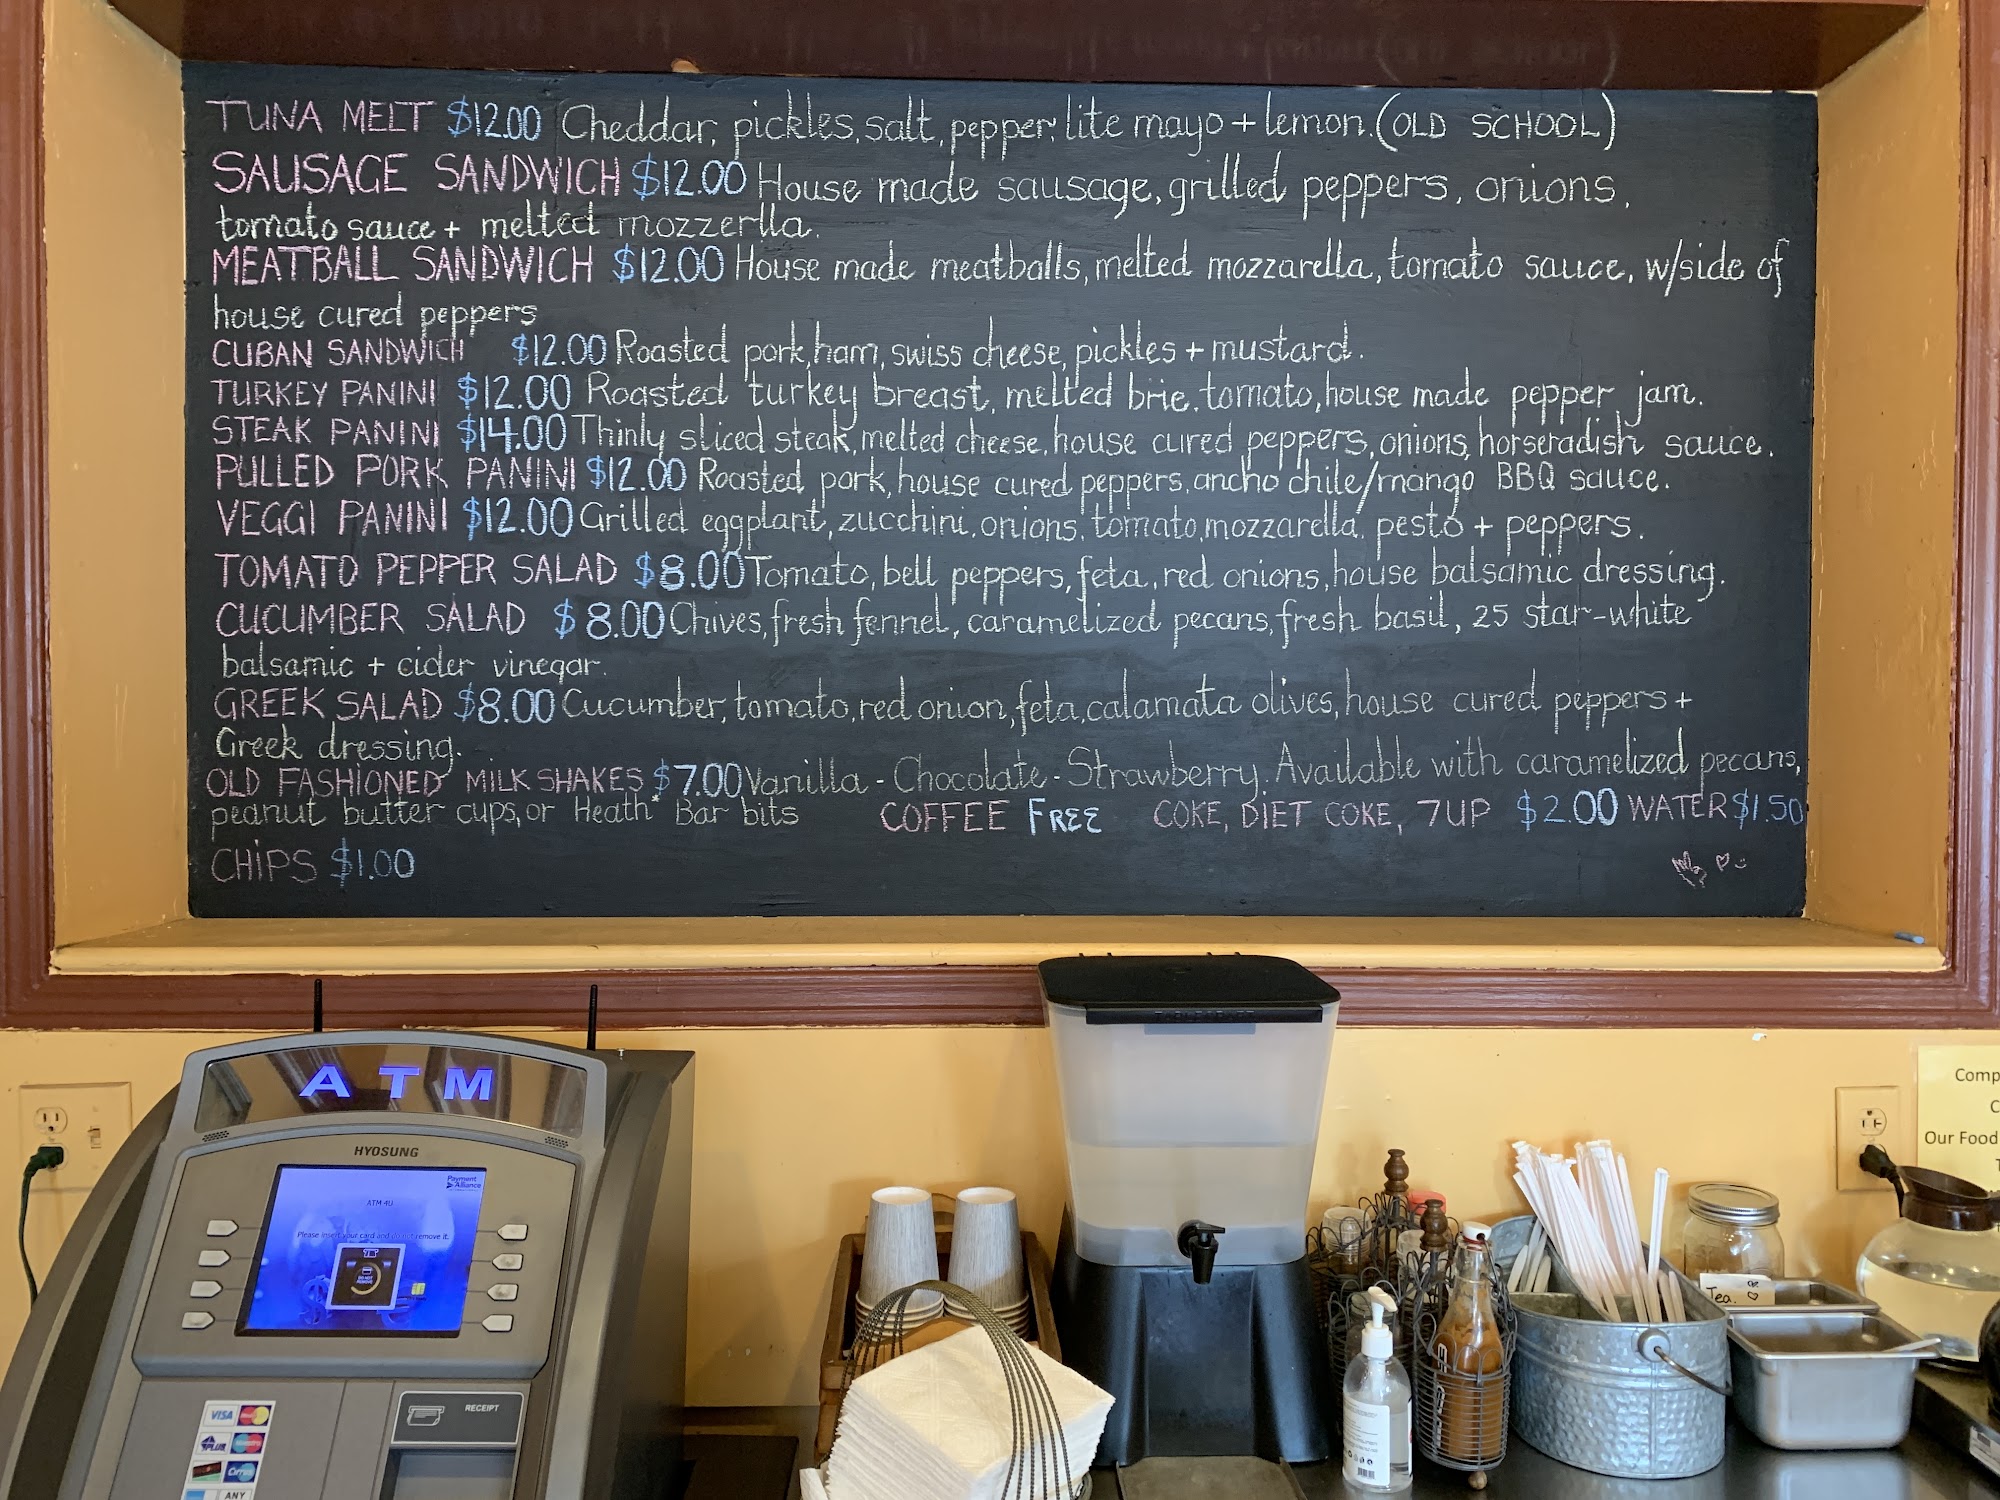 TUNA MELT $12.00 Cheddar, pickles, salt, pepper, lite mayo + lemon. (OLD SCHOOL)
SAUSAGE SANDWICH $12.00 House made sausage, grilled peppers, onions,
tomato sauce + melted mozzerlla.
MEATBALL SANDWICH $12.00 House made meatballs, melted mozzarella, tomato sauce, w/side of
house cured peppers
CUBAN SANDWICH $12.00 Roasted pork, ham, swiss cheese, pickles + mustard.
TURKEY PANINI $12.00 Roasted turkey breast, melted brie, tomato, house made pepper jam.
STEAK PANINI $14.00 Thinly sliced steak, melted cheese, house cured peppers, onions, horseradish sauce.
PULLED PORK PANINI $12.00 Roasted pork, house cured peppers, ancho chile/mango BBQ sauce.
VEGGI PANINI $12.00 Grilled eggplant, zucchini, onions, tomato, mozzarella, pesto + peppers.
TOMATO PEPPER SALAD $8.00 Tomato, bell peppers, feta, red onions, house balsamic dressing.
CUCUMBER SALAD $8.00 Chives, fresh fennel, caramelized pecans, fresh basil, 25 star-white
balsamic + cider vinegar.
GREEK SALAD $8.00 Cucumber, tomato, red onion, feta, calamata olives, house cured peppers +
Greek dressing.
OLD FASHIONED MILK SHAKES $7.00 Vanilla - Chocolate - Strawberry. Available with caramelized pecans,
peanut butter cups, or Heath* Bar bits COFFEE FREE COKE, DIET COKE, 7UP $2.00 WATER $1.50
CHIPS $1.00
ATM
HYOSUNG
Payment
Alliance
ATM 4U
Please insert your card and do not remove it.
DO NOT
REMOVE
RECEIPT
VISA
PLUS
Cirrus
ANY
Tea.
Comp
C
Our Food
T